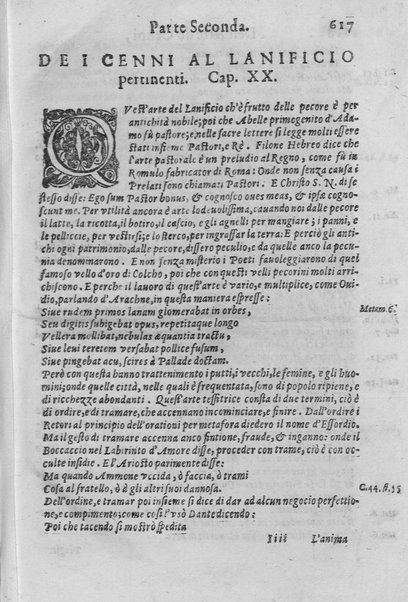 Parte Seconda. 617
DE I CENNI AL LANIFICIO
pertinenti. Cap. XX.
QVest'arte del Lanificio ch'è frutto delle pecore è per
antichità nobile; poi che Abelle primogenito d'Ada-
mo fù pastore; e, nelle sacre lettere si legge molti essere
stati insieme Pastori, e Rè. Filone Hebreo dice che
l'arte pastorale è un preludio al Regno, come fù in
Romulo fabricator di Roma: Onde non senza causa i
Prelati sono chiamati Pastori. E Christo S. N. di se
stesso disse: Ego sum Pastor bonus, & cognosco oues meas, & ipsæ cogno-
scunt me. Per vtilità ancora è arte lodeuolissima, cauando noi dalle pecore
il latte, la ricotta, il botiro, il cascio, e gli agnelli per mangiare; i panni, e
le pelliccie, per vestirsi; e lo sterco, per ingrassar la terra: E perciò gli anti-
chi ogni patrimonio, dalle pecore, dissero peculio; e da quelle anco la pecu-
nia denominarono. E non senza misterio i Poeti fauoleggiarono di quel
famoso vello d'oro di Colcho, poi che con questi velli pecorini molti arri-
chiscono. E perche il lauoro di quest'arte è vario, e multiplice, come Oui-
dio, parlando d'Arachne, in questa maniera espresse:
Siue rudem primos lanam glomerabat in orbes, Metam. 6.
Seu digitis subigebat opus, repetitaque longo
Vellera mollibat, nebulas æquantia tractu,
Siue leui teretem versabat pollice fusum,
Siue pingebat acu, scires à Pallade doctam.
Però con questa hanno trattenimento i putti, i vecchi, le femine, e gli huo-
mini; onde quelle città, nelle quali è frequentata, sono di popolo ripiene, e
di ricchezze abondanti. Quest'arte tessitrice consta di due termini, ciò è
di ordire, e di tramare, che accennano incominciare, e finire. Dall'ordire i
Retori al principio dell'orationi per metafora diedero il nome d'Essordio.
Ma il gesto di tramare accenna anco fintione, fraude, & inganno: onde il
Boccaccio nel Labirinto d'Amore disse, proceder con trame, ciò è con oc-
culte insidie. E l'Ariosto parimente disse:
Ma quando Ammone vccida, ò faccia, ò trami
Cosa al fratello, ò à gli altri suoi dannosa. C. 44. st. 35
Dell'ordine, e tramar poi insieme si dice di dar ad alcun negocio perfettio-
ne, e compimento; come così l'vsò Dante dicendo:
Poi che tacendo si mostrò spedita
Iiii L'anima